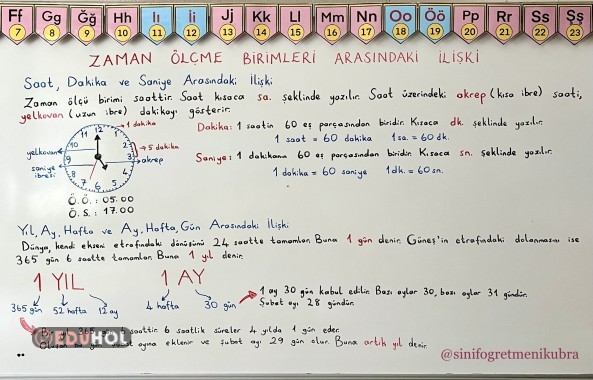 Ff Gg Ğğ Hh Iı İi Jj Kk Ll Mm Nn Oo Öö Pp Rr Ss Şş
7 8 9 10 11 12 13 14 15 16 17 18 19 20 21 22 23
ZAMAN ÖLÇME BİRİMLERİ ARASINDAKİ İLİŞKİ
Saat, Dakika ve Saniye Arasındaki İlişki
Zaman ölçü birimi saattir. Saat kısaca sa. şeklinde yazılır. Saat üzerindeki akrep (kısa ibre) saati,
yelkovan (uzun ibre) dakikayı gösterir.
1 dakika
5 dakika
yelkovan
akrep
saniye ibresi
12 1 2 3 6 7 8 9 10 11
Ö.Ö.: 05.00
Ö.S.: 17.00
Dakika: 1 saatin 60 eş parçasından biridir. Kısaca dk. şeklinde yazılır.
1 saat = 60 dakika 1 sa. = 60 dk.
Saniye: 1 dakikanın 60 eş parçasından biridir. Kısaca sn. şeklinde yazılır.
1 dakika = 60 saniye 1 dk. = 60 sn.
Yıl, Ay, Hafta ve Ay, Hafta, Gün Arasındaki İlişki
Dünya, kendi ekseni etrafındaki dönüşünü 24 saatte tamamlar. Buna 1 gün denir. Güneş'in etrafındaki dolanmasını ise
365 gün 6 saatte tamamlar. Buna 1 yıl denir.
1 YIL 1 AY
365 gün 52 hafta 12 ay 4 hafta 30 gün
1 ay 30 gün kabul edilir. Bazı aylar 30, bazı aylar 31 gündür.
Şubat ayı 28 gündür.
365 saattir. 6 saatlik süreler 4 yılda 1 gün eder.
ayına eklenir ve şubat ayı 29 gün olur. Buna artık yıl denir.
EDUHOL
@sinifogretmenikubra